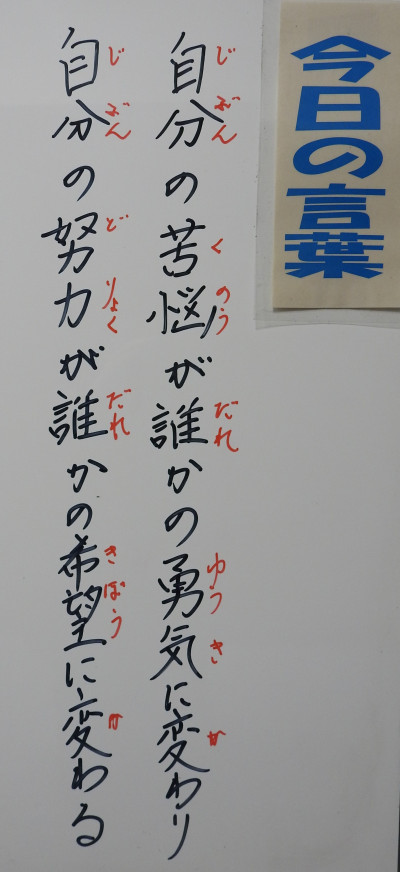 今日の言葉
自分の苦悩が誰かの勇気に変わり
じぶん くのう だれ ゆうき か
自分の努力が誰かの希望に変わる
じぶん どりょく だれ きぼう か